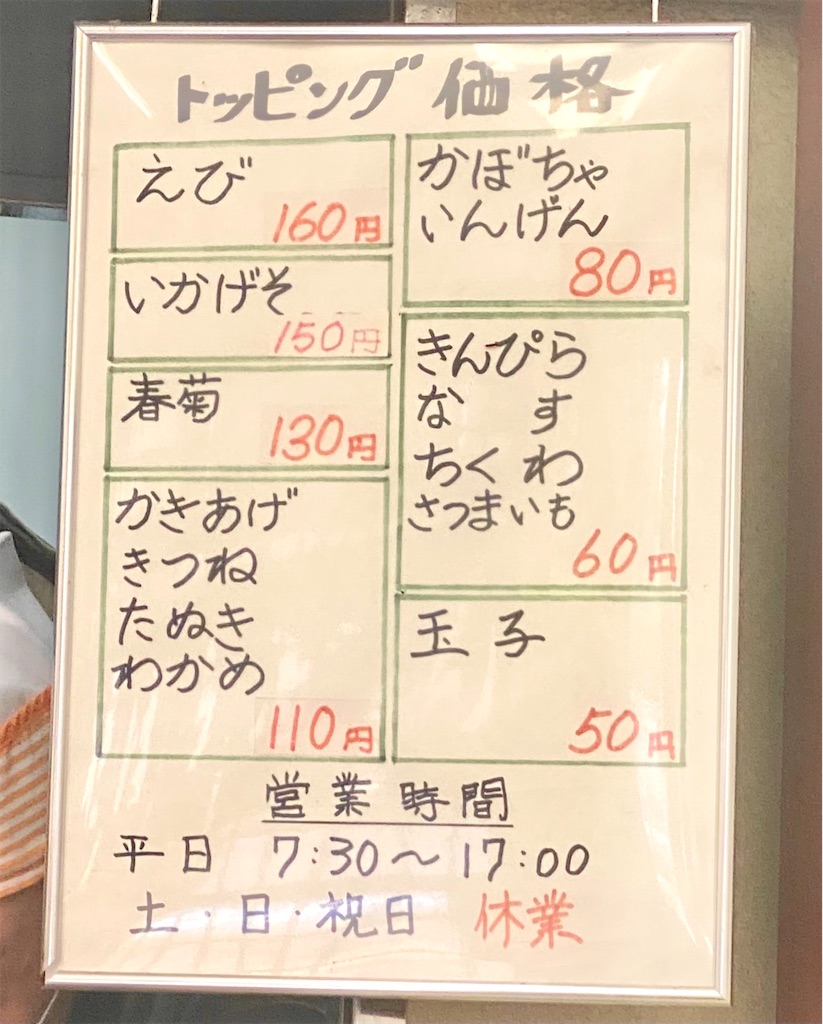 トッピング 価格
えび
160円
いかげそ
150円
春菊
130円
かきあげ
きつね
たぬき
わかめ
110円
かぼちゃ
いんげん
80円
きんぴら
なす
ちくわ
さつまいも
60円
玉子
50円
営業時間
平日 7:30〜17:00
土・日・祝日 休業